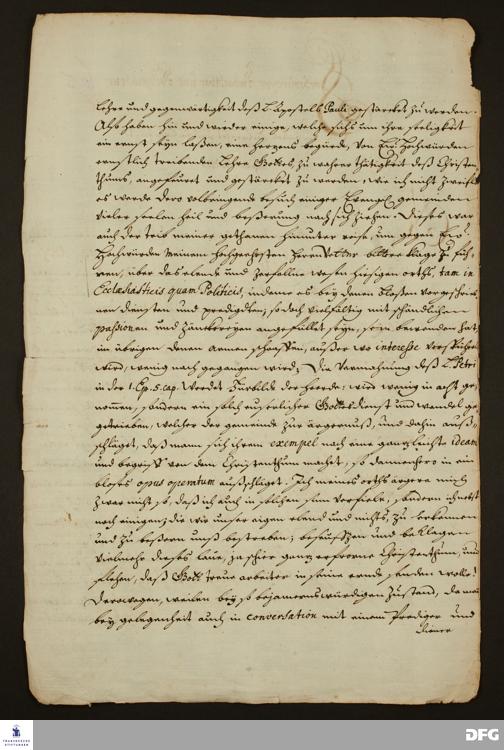 lehre und gegenwärtigkeit deß L. Apostels Pauli gestärcket zu werden.
Also haben hin und wieder einige, welche sichs um ihre seeligkeit
ein ernst seyn laßen, eine herzens begierde, von Eu: Hochwürden
ernstlich treibenden Lehre Gottes, zu wahrer thätigkeit deß Christen
thums, angefeuret und gestärcket zu werden, wie ich nicht zweifle
es werde dero vollbringende besuch einiger Exempl. gemeinden
vieler seelen heil und beßerung nach sich ziehen. Dieses war
auch der trieb meiner gethanen hinunter reise, um gegen Eu:
Hochwürden meinem Hochgeehrten Herrn Vetter bittere klage zu füh-
ren, über das elende und zerfallene wesen hiesigen orths, tam in
Ecclesiasticis quam Politicis, indeme es bey denen bloßen vorgeschrie-
nen diensten und predigten, so doch vielfältig mit schändlichen
passionen und zänckereyen angefüllet seyn, sein bewenden hat,
im übrigen denen armen schaaffen, außer wo interesse verspühret
wird, wenig nach gegangen wird; Die Vermahnung deß L. Petri
in der 1. Ep. 5. cap. Werdet Fürbilde der heerde: wird wenig in acht ge-
nommen, sondern ein solch euserlicher Gottesdienst und wandel ge-
getrieben, welcher der gemeinde zur ärgernüß, und dahin auß-
schläget, daß mann sich ihrem exempel nach eine gantz leichte ideam
und begriff von dem Christenthum machet, so dannenhero in ein
bloses opus operatum außschläget. Ich meines orths ärgere mich
zwar nicht so, daß ich auch in solchen sinn verfiele, sondern ich nebst
noch einigen, die wir unser eigen elend und nichts, zu erkennen
und zu beßern unß bestreben; beseuftzen und beklagen
vielmehr dieses laue, ja schier gantz erfrorne Christenthum, und
flehen, daß Gott treue arbeiter in seine ernde senden wolle!
Derowegen, weilen bey so bejamernswürdigen zustand, da man
bey gelegenheit auch in conversation mit einem Prediger und
diener
FRANCKESCHE
STIFTUNGEN
DFG